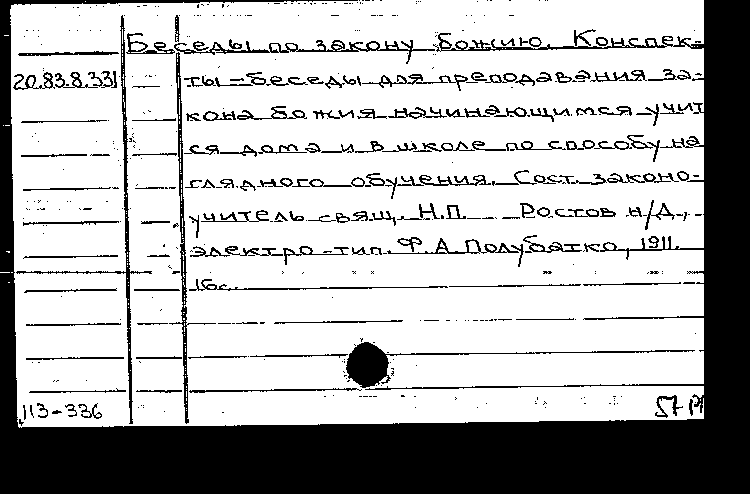 Беседы по закону божию. Конспек-
20.83.8.331 ты-беседы для преподавания за-
кона божия начинающимся учит
ся дома и в школе по способу на
глядного обучения. Сост. законо-
учитель свящ. Н.П. Ростов н/Д.,
электро-тип. Ф.А Полубатко, 1911.
16с.
113-336